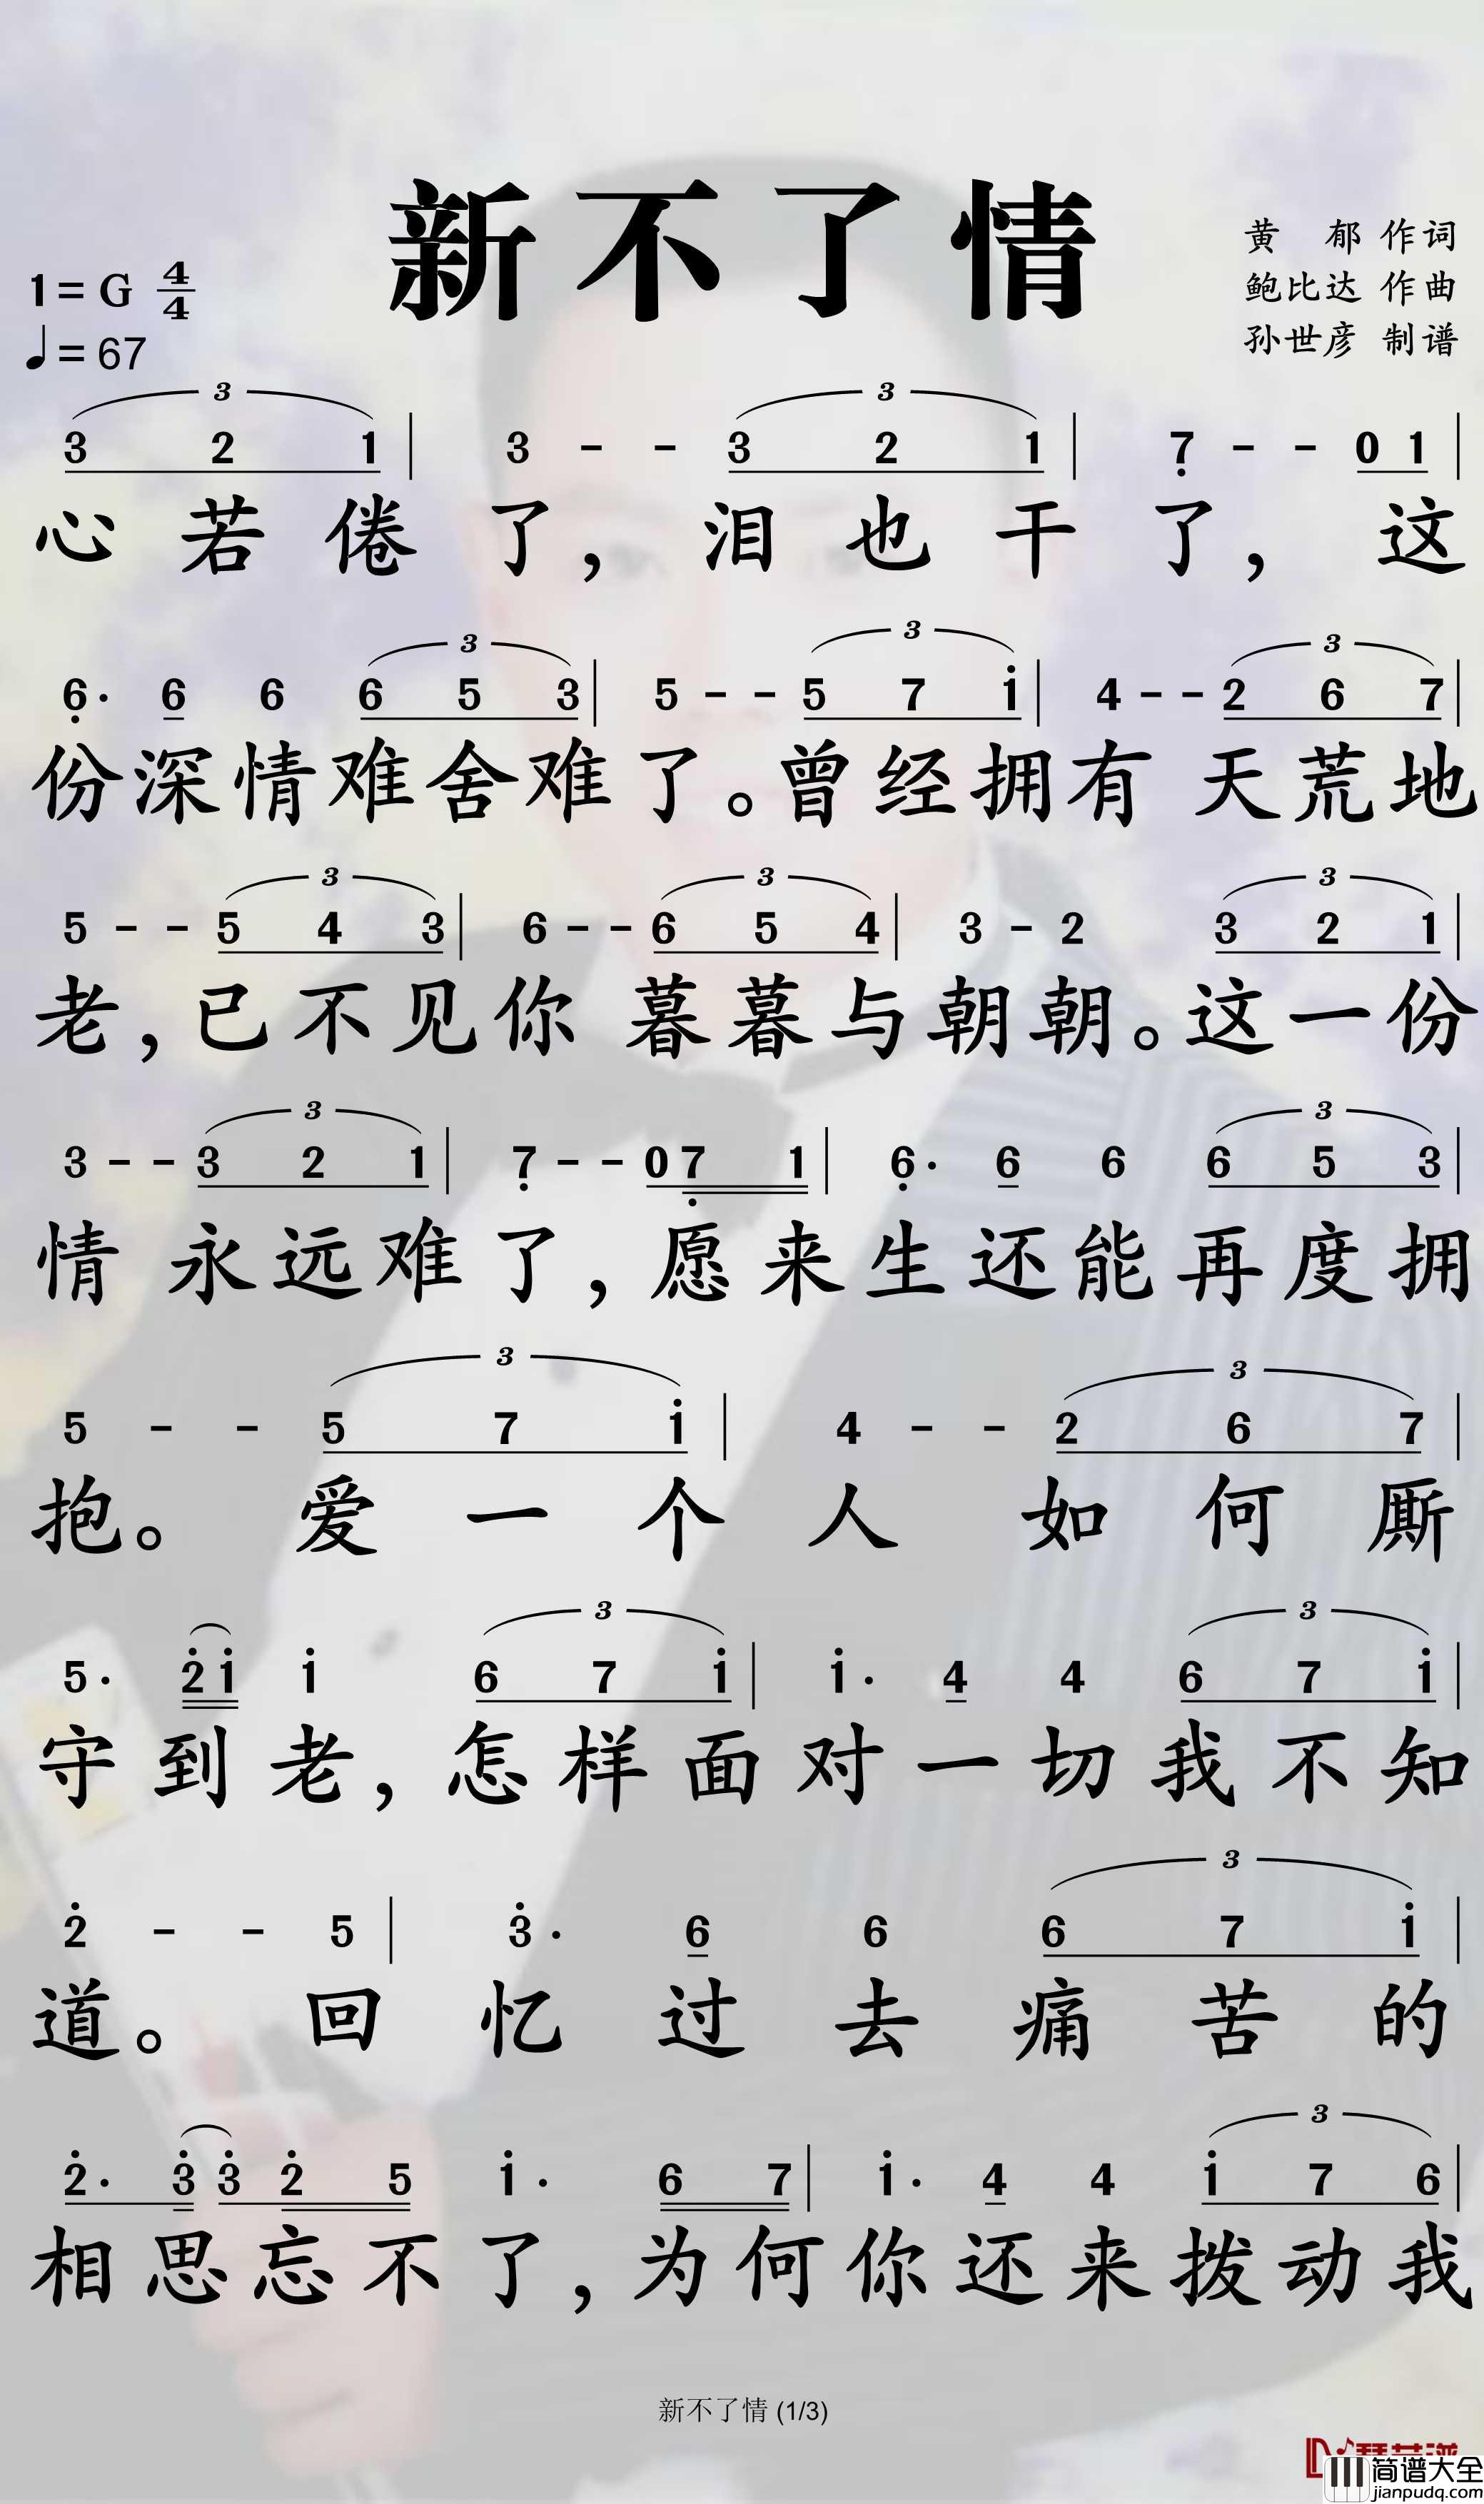 新不了情
黄 郁 作词
鲍比达 作曲
孙世彦 制谱
1=G 4/4
♩=67
3 2 1 | 3 - - 3 2 1 | 7̣ - - 0 1 |
心若倦了，泪也干了，这
6̣· 6 6 6 5 3 | 5 - - 5 7 1̇ | 4 - - 2 6 7 |
份深情难舍难了。曾经拥有 天荒地
5 - - 5 4 3 | 6 - - 6 5 4 | 3 - 2 3 2 1 |
老，已不见你 暮暮与朝朝。这一份
3 - - 3 2 1 | 7̣ - - 0 7̣ 1 | 6̣· 6 6 6 5 3 |
情 永远难了，愿来生还能再度拥
5 - - 5 7 1̇ | 4 - - 2 6 7 |
抱。 爱一个人 如何厮
5· 2̇ 1̇ 1̇ 6 7 1̇ | 1̇· 4 4 6 7 1̇ |
守到老，怎样面对一切我不知
2̇ - - 5 | 3̇· 6 6 6 7 1̇ |
道。 回忆过去痛苦的
2̇· 3̇ 3̇ 2̇ 5 1̇· 6 7 | 1̇· 4 4 1̇ 7 6 |
相思忘不了，为何你还来拨动我
新不了情 (1/3)
简谱大全
jianpudq.com